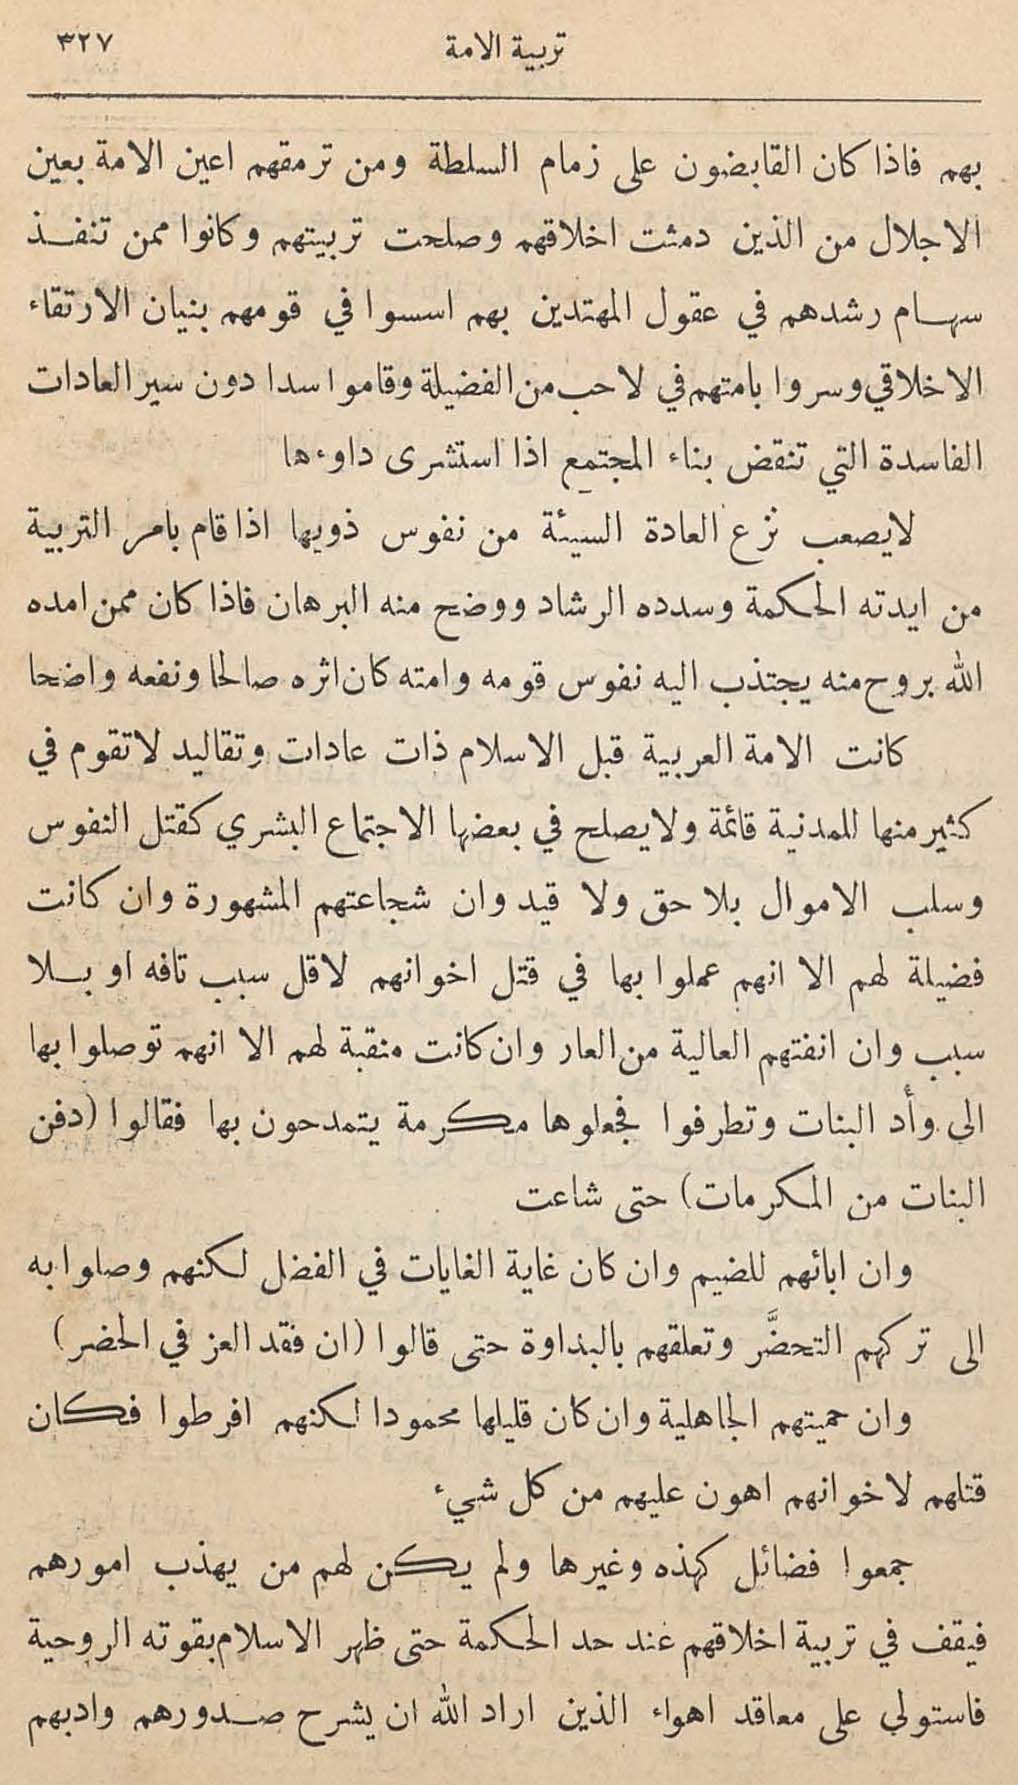 تربية الامة ٣٢٧
بهم فاذا كان القابضون على زمام السلطة ومن ترمقهم اعين الامة بعين
الاجلال من الذين دمثت اخلاقهم وصلحت تربيتهم وكانوا ممن تنفذ
سهام رشدهم في عقول المهتدين بهم اسسوا في قومهم بنيان الارتقاء
الاخلاقي وسروا بامتهم في لاحب من الفضيلة وقاموا سدا دون سير العادات
الفاسدة التي تنقض بناء المجتمع اذا استشرى داوءها
لايصعب نزع العادة السيئة من نفوس ذويها اذا قام بامر التربية
من ايدته الحكمة وسدده الرشاد ووضح منه البرهان فاذا كان ممن امده
الله بروح منه يجتذب اليه نفوس قومه وامته كان اثره صالحا ونفعه واضحا
كانت الامة العربية قبل الاسلام ذات عادات وتقاليد لاتقوم في
كثير منها للمدنية قائمة ولايصلح في بعضها الاجتماع البشري كقتل النفوس
وسلب الاموال بلا حق ولا قيد وان شجاعتهم المشهورة وان كانت
فضيلة لهم الا انهم عملوا بها في قتل اخوانهم لاقل سبب تافه او بلا
سبب وان انفتهم العالية من العار وان كانت منقبة لهم الا انهم توصلوا بها
الى وأد البنات وتطرفوا فجعلوها مكرمة يتمدحون بها فقالوا (دفن
البنات من المكرمات) حتى شاعت
وان ابائهم للضيم وان كان غاية الغايات في الفضل لكنهم وصلوا به
الى تركهم التحضَّر وتعلقهم بالبداوة حتى قالوا (ان فقد العز في الحضر)
وان حميتهم الجاهلية وان كان قليلها محمودا لكنهم افرطوا فكان
قتلهم لاخوانهم اهون عليهم من كل شيء
جمعوا فضائل كهذه وغيرها ولم يكن لهم من يهذب امورهم
فيقف في تربية اخلاقهم عند حد الحكمة حتى ظهر الاسلام بقوته الروحية
فاستولى على معاقد اهواء الذين اراد الله ان يشرح صدورهم وادبهم